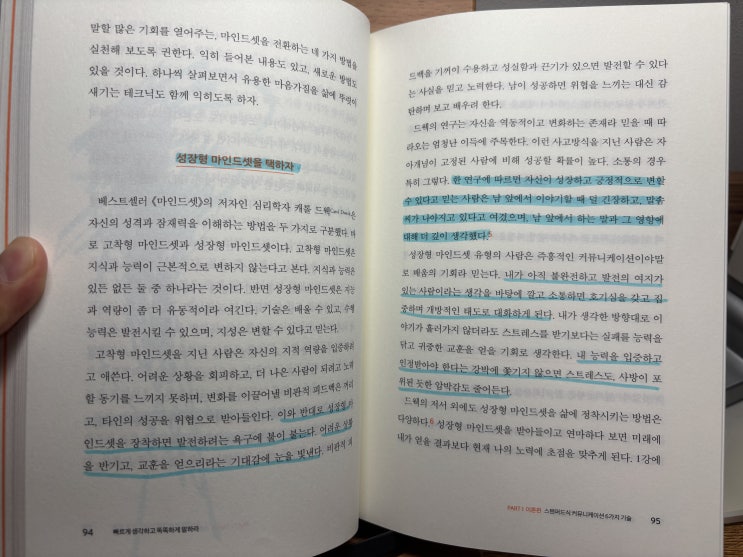 말할 많은 기회를 열어주는, 마인드셋을 전환하는 네 가지 방법을
실천해 보도록 권한다. 익히 들어본 내용도 있고, 새로운 방법도
있을 것이다. 하나씩 살펴보면서 유용한 마음가짐을 삶에 뚜렷이
새기는 테크닉도 함께 익히도록 하자.
성장형 마인드셋을 택하자
베스트셀러 《마인드셋》의 저자인 심리학자 캐롤 드웩Carol Dweck은
자신의 성격과 잠재력을 이해하는 방법을 두 가지로 구분했다. 바
로 고착형 마인드셋과 성장형 마인드셋이다. 고착형 마인드셋은
지식과 능력이 근본적으로 변하지 않는다고 본다. 지식과 능력은
있든 없든 둘 중 하나라는 것이다. 반면 성장형 마인드셋은 지능
과 역량이 좀 더 유동적이라 여긴다. 기술은 배울 수 있고, 수행
능력은 발전시킬 수 있으며, 지성은 변할 수 있다고 믿는다.
고착형 마인드셋을 지닌 사람은 자신의 지적 역량을 입증하려
고 애쓴다. 어려운 상황을 회피하고, 더 나은 사람이 되려고 노력
할 동기를 느끼지 못하며, 변화를 이끌어낼 비판적 피드백은 꺼리
고, 타인의 성공을 위협으로 받아들인다. 이와 반대로 성장형 마
인드셋을 장착하면 발전하려는 욕구에 불이 붙는다. 어려운 상황
을 반기고, 교훈을 얻으리라는 기대감에 눈을 빛낸다. 비판적 피
94 빠르게 생각하고 똑똑하게 말하라
드백을 기꺼이 수용하고 성실함과 끈기가 있으면 발전할 수 있다
는 사실을 믿고 노력한다. 남이 성공하면 위협을 느끼는 대신 감
탄하며 보고 배우려 한다.
드웩의 연구는 자신을 역동적이고 변화하는 존재라 믿을 때 따
라오는 엄청난 이득에 주목한다. 이런 사고방식을 지닌 사람은 자
아개념이 고정된 사람에 비해 성공할 확률이 높다. 소통의 경우
특히 그렇다. 한 연구에 따르면 자신이 성장하고 긍정적으로 변할
수 있다고 믿는 사람은 남 앞에서 이야기할 때 덜 긴장하고, 말솜
씨가 나아지고 있다고 여겼으며, 남 앞에서 하는 말과 그 영향에
대해 더 깊이 생각했다.
성장형 마인드셋 유형의 사람은 즉흥적인 커뮤니케이션이야말
로 배움의 기회라 믿는다. 내가 아직 불완전하고 발전의 여지가
있는 사람이라는 생각을 바탕에 깔고 소통하면 호기심을 갖고 집
중하며 개방적인 태도로 대화하게 된다. 내가 생각한 방향대로 이
야기가 흘러가지 않더라도 스트레스를 받기보다는 실패를 능력을
닦고 귀중한 교훈을 얻을 기회로 생각한다. 내 능력을 입증하고
인정받아야 한다는 강박에 쫓기지 않으면 스트레스도, 사방이 포
위된 듯한 압박감도 줄어든다.
드웩의 저서 외에도 성장형 마인드셋을 삶에 정착시키는 방법은
다양하다. 성장형 마인드셋을 받아들이고 연마하다 보면 미래에
내가 얻을 결과보다 현재 나의 노력에 초점을 맞추게 된다. 1강에
PART 1 이론편 스탠퍼드식 커뮤니케이션 6가지 기술 95